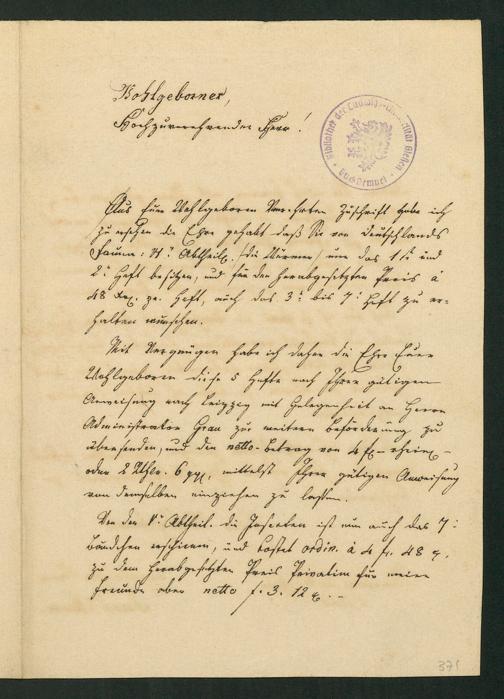 Wohlgeborner,
Hochzuverehrender Herr!
Bibliothek der Ludwigs-Universität Giessen
Aus Euer Wohlgeboren Verehrten Zuschrift habe ich
zu ersehen die Ehre gehabt daß Sie von Deutschlands
Fauna: Abtheil. /die Würmer/ nur das 1te und
2te Heft besitzen, und für den herabgesetzten Preis à
48 pr. Heft, auch das 3te bis 7te Heft zu er-
halten wünschen.
Mit Vergnügen habe ich daher die Ehre Euer
Wohlgeboren diese 5 Hefte nach Ihrer gütigen
Anweisung nach Leipzig mit Gelegenheit an Herrn
Administrator Grau zur weitern Beförderung zu
übersenden, und den netto-Betrag von 4 fl rhein
oder 2 Rthlr. 6 mittelst Ihrer gütigen Anweisung
von demselben einziehen zu lassen.
Von der Vten Abtheil. die Insecten ist nun auch das 7te
Bändchen erschienen, und kostet ordin. à 4 fr. 48
zu dem herabgesetzten Preis Privatim für meine
Freunde aber netto f. 3. 12
371